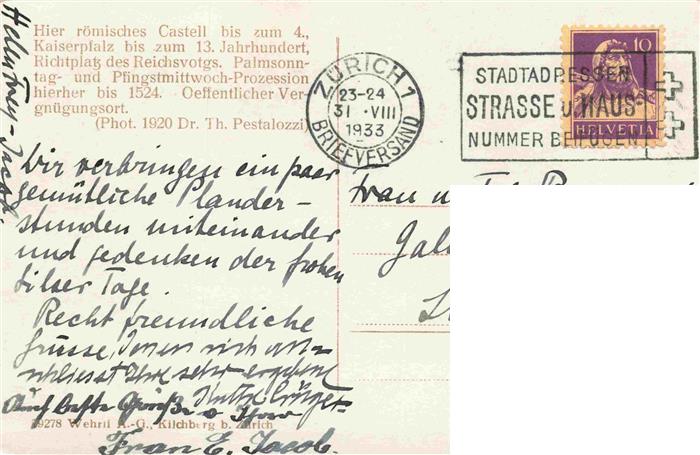 Hier römisches Castell bis zum 4.,
Kaiserpfalz bis zum 13. Jahrhundert,
Richtplatz des Reichsvotgs. Palmsonn-
tag- und Pfingstmittwoch-Prozession
hierher bis 1524. Oeffentlicher Ver-
gnügungsort.
(Phot. 1920 Dr. Th. Pestalozzi)
ZÜRICH 1
23-24
31. VIII
1933
BRIEFVERSAND
STADTADRESSEN
STRASSE u. HAUS
NUMMER BEIFÜGEN
10
HELVETIA
Wir verbringen ein paar
gemütliche Plauder-
stunden miteinander
und gedenken der frohen
Silser Tage.
Recht freundliche
Grüsse, Ihnen sich an-
schliesst Ihre sehr ergebene
Auch beste Grüße v. Ihrer
Frau E. Jacob.
Helen Frey-Jacob
Frau
39278 Wehrli A.-G., Kilchberg b. Zürich